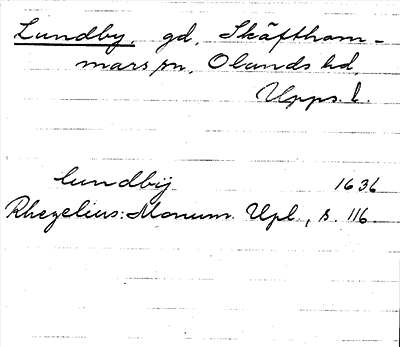 Lundby, gd, Skäftham-
mars sn, Olands hd,
Upps. l.
lundbij 1636
Rhezelius: Monum. Upl, s. 116